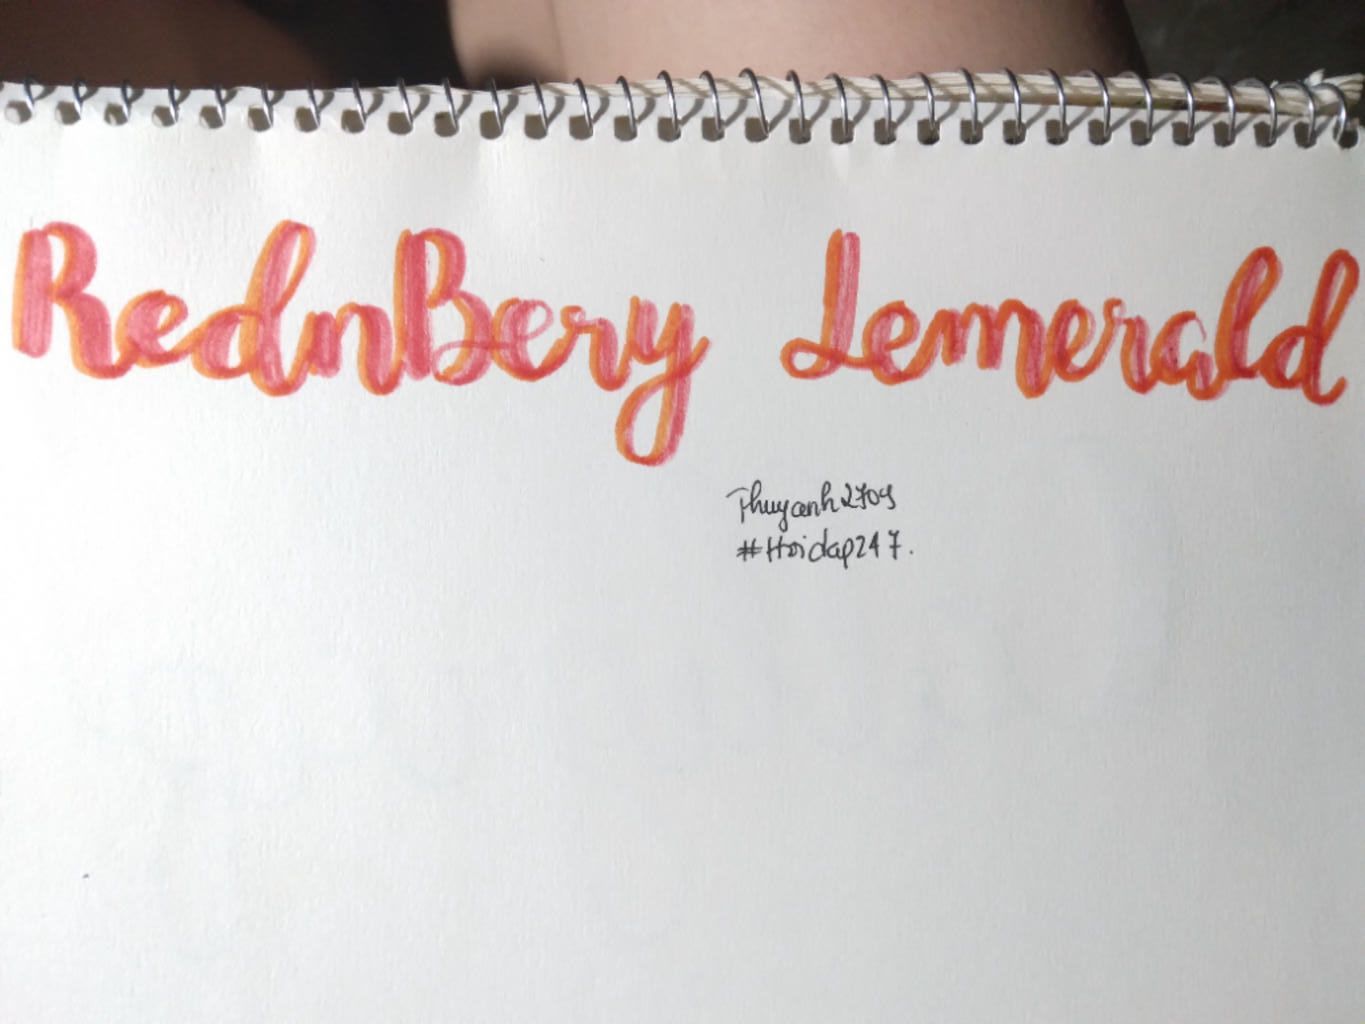 RednBery Lemerald
Thuyanh2709
#Hoidap247.